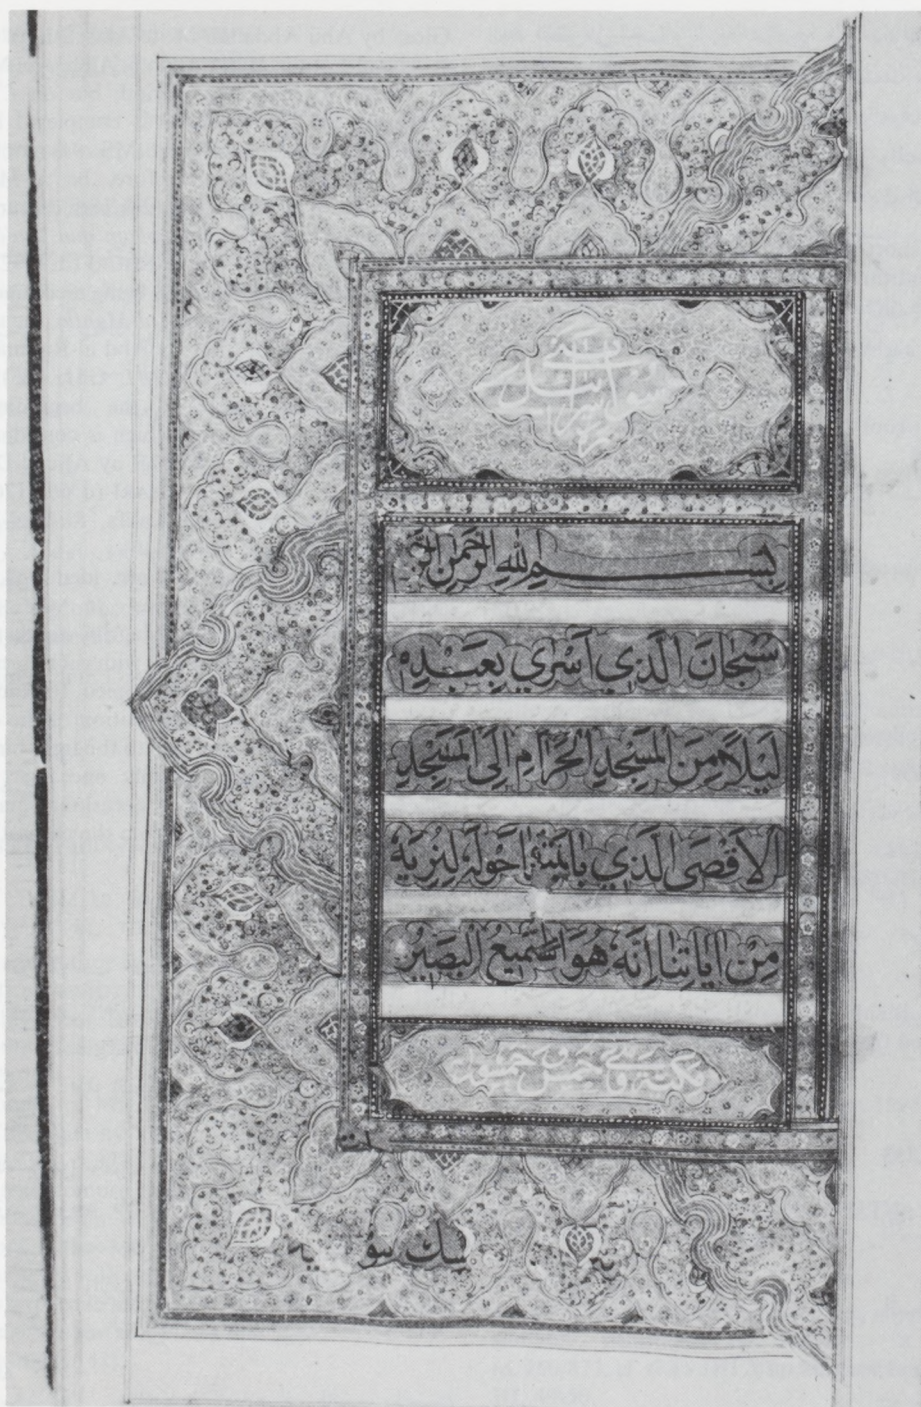 سورة بني اسرائيل
بِسْمِ اللهِ الرَّحْمٰنِ الرَّ
سُبْحَانَ الَّذِي اَسْرٰي بِعَبْدِهٖ
لَيْلًا مِنَ الْمَسْجِدِ الْحَرَامِ اِلَى الْمَسْجِدِ
الْاَقْصَى الَّذِي بَارَكْنَا حَوْلَهُ لِنُرِيَهُ
مِنْ اٰيَاتِنَا اِنَّهُ هُوَ السَّمِيعُ الْبَصِيرُ